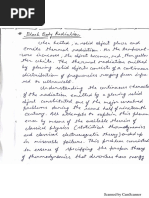 * Black Body Radiation
When heated, a solid object glows and
emits thermal radiation. As the temperat-
ure increases, the object becomes red, then yellow
then white. The thermal radiation emitted
by glowing solid objects consists of a continuous
distribution of frequencies ranging from infra-
red to ultraviolet.
Understanding the continuous character
of the radiation emitted by a glowing solid
object constituted one of the major unsolved
problems during the second half of nineteenth
century. All attempts to explain this phenomenon
by means of the available theories of
classical physics (statistical thermodynamics
and classical electromagnetic theory) ended up
in miserable failure. This problem consisted
in essence of specifying the proper theory
of thermodynamics that describes how energy
Scanned by CamScanner